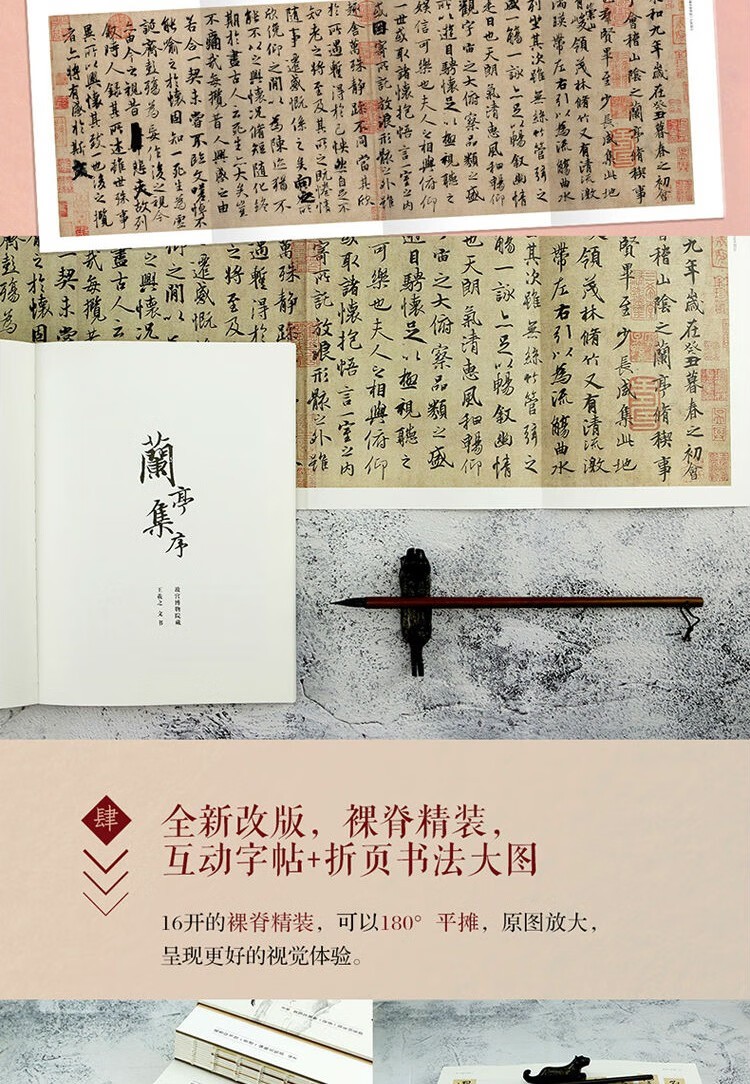 和九年歲在癸丑暮春之初會
會稽山陰之蘭亭脩稧事
賢畢至少長咸集此地
峻領茂林脩竹又有清流激
湍暎帶左右引以為流觴曲水
列坐其次雖無絲竹管弦之
盛一觴一詠亦足以暢敘幽情
是日也天朗氣清惠風和暢仰
觀宇宙之大俯察品類之盛
所以遊目騁懷足以極視聽之
娛信可樂也夫人之相與俯仰
一世或取諸懷抱悟言一室之內
或因寄所託放浪形骸之外雖
趣舍萬殊靜躁不同當其欣
於所遇暫得於己怏然自足不
知老之將至及其所之既惓情
隨事遷感慨係之矣向之所
欣俛仰之閒以為陳迹猶不
能不以之興懷況脩短隨化終
期於盡古人云死生亦大矣豈
不痛哉每攬昔人興感之由
若合一契未嘗不臨文嗟悼不
能喻之於懷固知一死生為虛
誕齊彭殤為妄作後之視今
亦由今之視昔悲夫故列
敘時人錄其所述雖世殊事
異所以興懷其致一也後之攬
者亦將有感於斯文
九年歲在癸丑暮春之初會
稽山陰之蘭亭脩稧事
賢畢至少長咸集此地
領茂林脩竹又有清流激
帶左右引以為流觴曲水
其次雖無絲竹管弦之
觴一詠亦足以暢敘幽情
也天朗氣清惠風和暢仰
宙之大俯察品類之盛
遊目騁懷足以極視聽之
可樂也夫人之相與俯仰
或取諸懷抱悟言一室之內
寄所託放浪形骸之外雖
萬殊靜躁
遇暫得於
之將至及
遷感慨
仰之閒以
之興懷況
盡古人云
哉每攬
一契未嘗
之於懷固
齊彭殤為
蘭亭集序
故宫博物院藏
王羲之 文 书
肆
全新改版，裸脊精装，
互动字帖+折页书法大图
16开的裸脊精装，可以180°平摊，原图放大，
呈现更好的视觉体验。